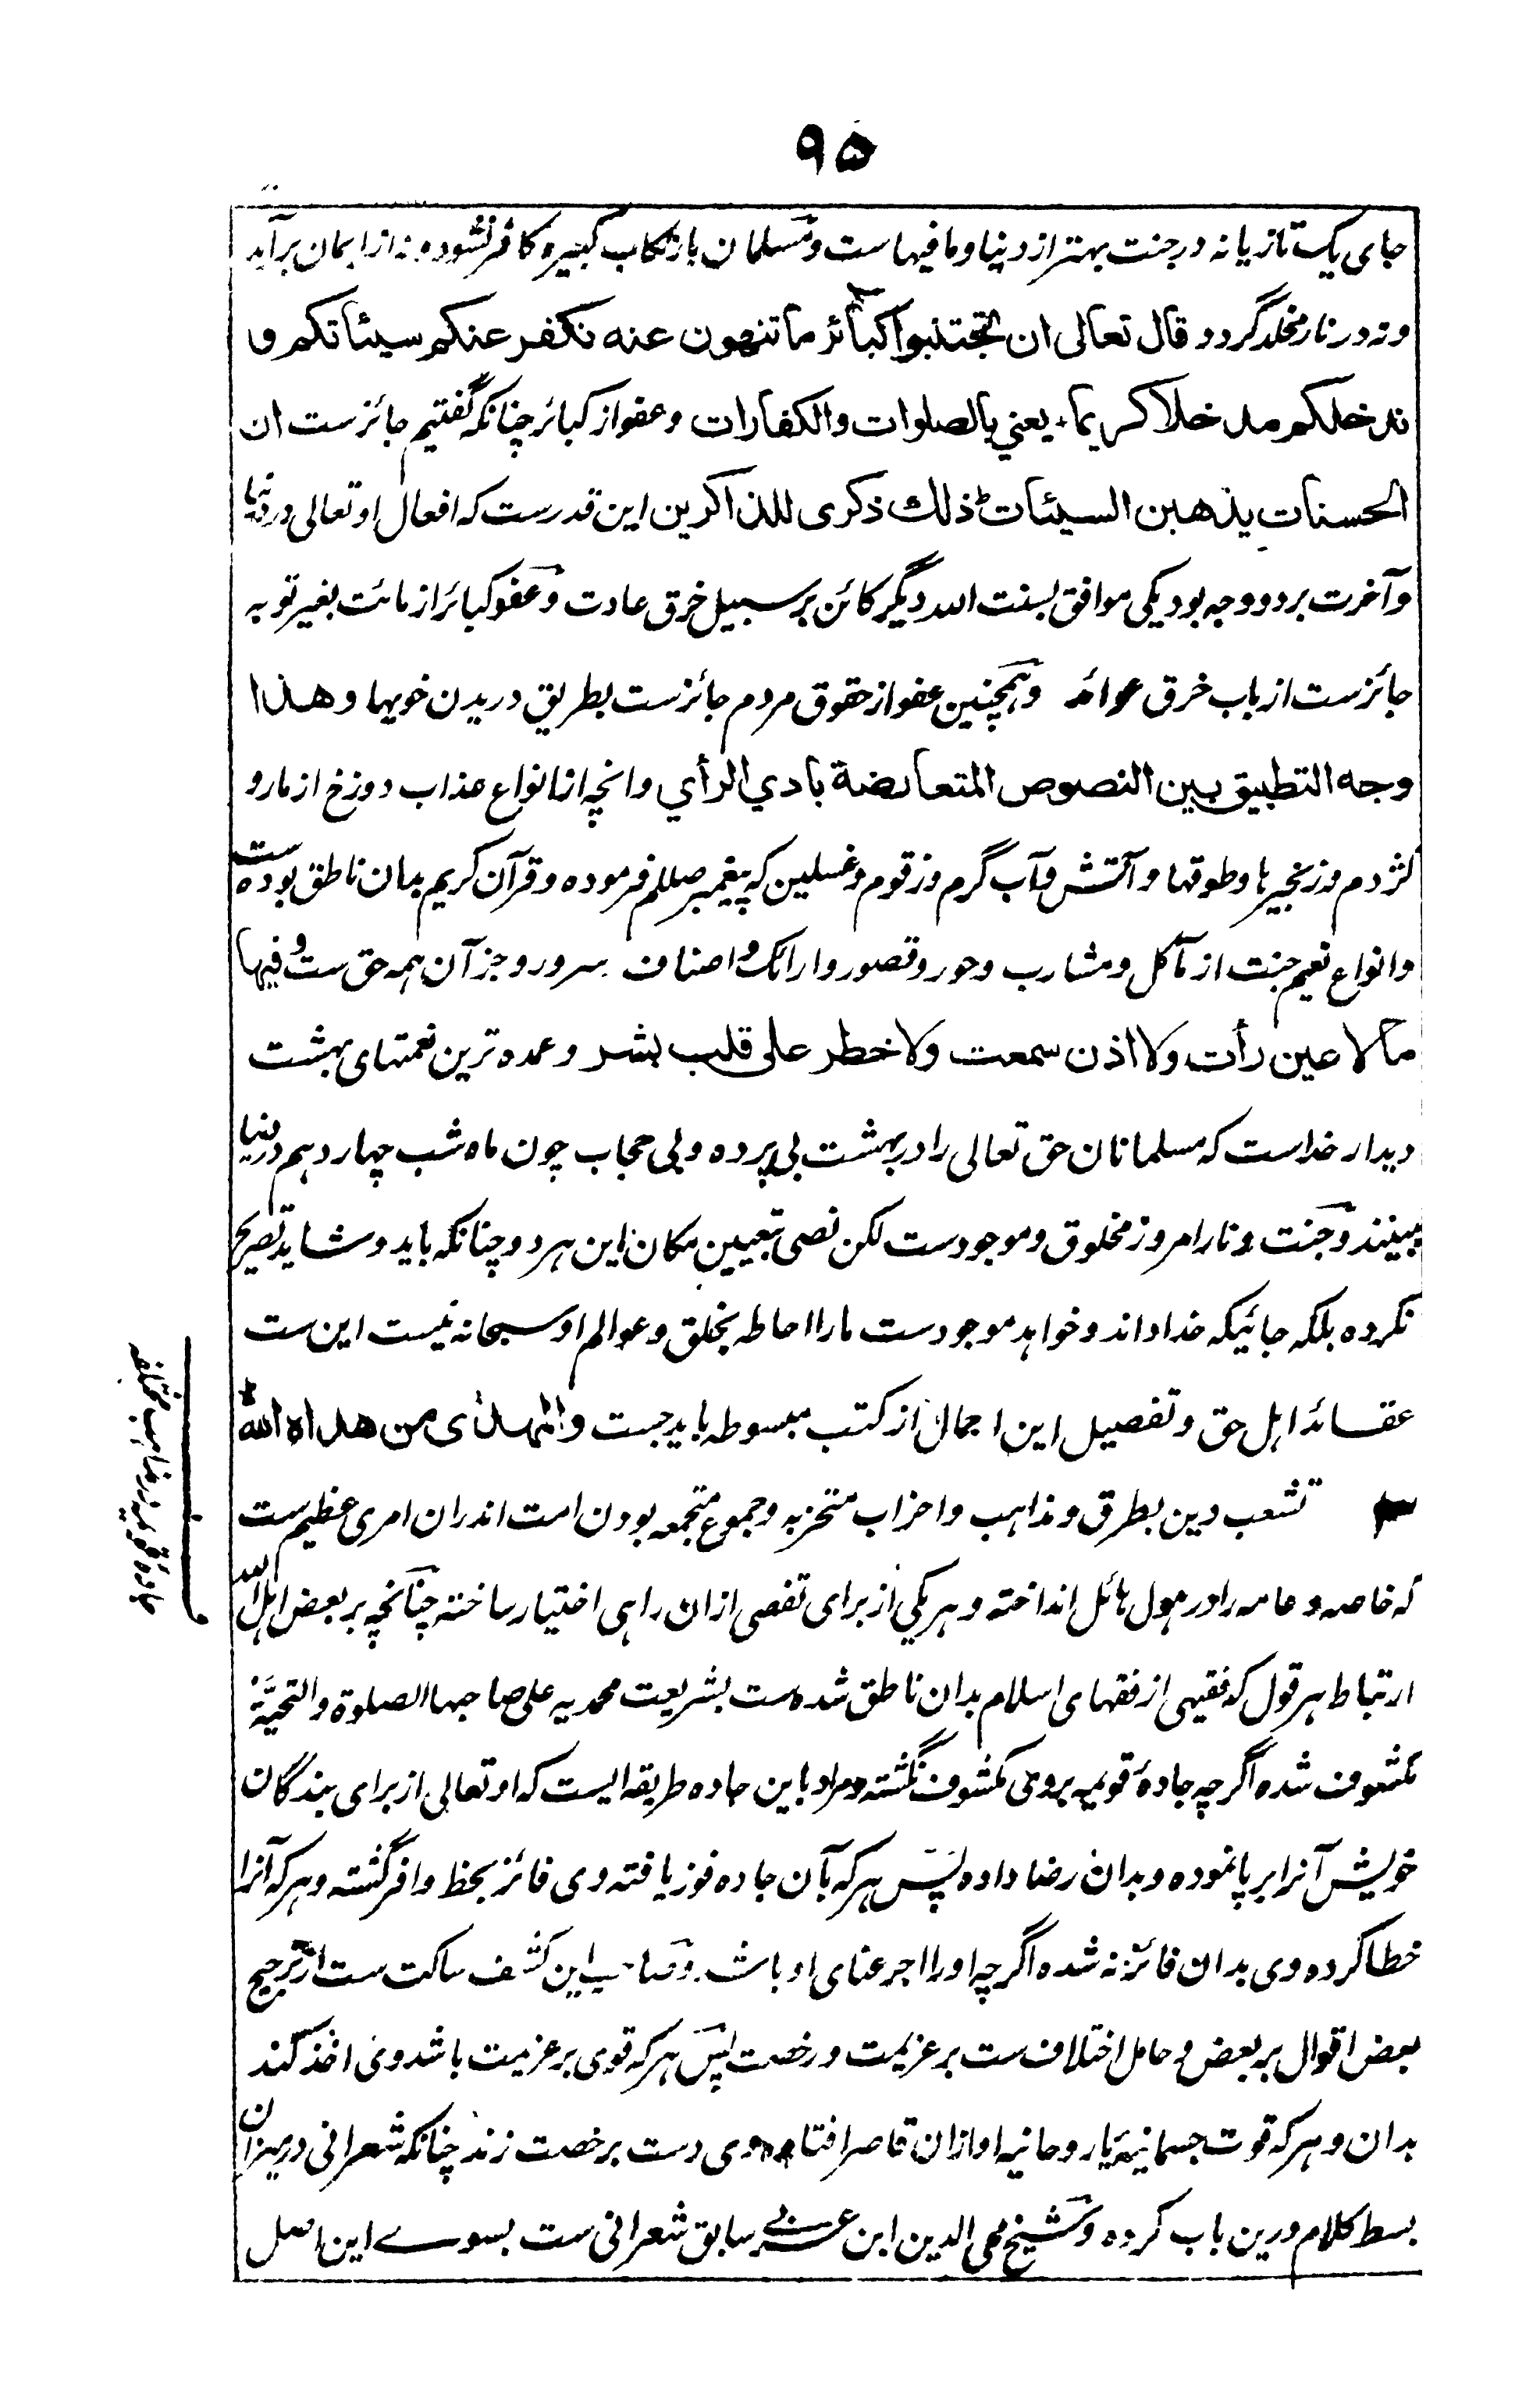 ۹۵
جای یک تازیانه در جنت بهتر از دنیا و ما فیها ست و مسلمان بارتکاب کبیره کافر نشود و نه از ایمان برآید
و نه در نار مخلد گردد قال تعالی ان تجتنبوا کبائر ما تنهون عنه نکفر عنکم سیئاتکم و
ندخلکم مدخلا کریما، یعني بالصلوات والکفارات و عفو از کبائر چنانکه گفتیم جائز ست ان
الحسنات یذهبن السیئات ط ذلك ذکری للذاکرین این قدر ست که افعال او تعالی در دنیا
و آخرت بر دو وجه بود یکی موافق بسنت الله دیگر کائن بر سبیل خرق عادت و عفو کبائر از مائت بغیر توبه
جائز ست از باب خرق عوائد و همچنین عفو از حقوق مردم جائز ست بطریق دریدن خویها و هذا
وجه التطبیق بین النصوص المتعارضة بادي الرأي و انچه از انواع عذاب دوزخ از مار و
کژدم و زنجیرها و طوقها و آتش و آب گرم و زقوم و غسلین که پیغمبر صللم فرموده و قرآن کریم بدان ناطق بوده ست
و انواع نعیم جنت از مآکل و مشارب و حور و قصور و ارائک و اصناف سرور و جز آن همه حق ست و فیها
ما لا عین رأت ولا اذن سمعت ولا خطر علی قلب بشر و عمده ترین نعمتهای بهشت
دیدار خداست که مسلمانان حق تعالی را در بهشت بی پرده و بی حجاب چون ماه شب چهاردهم در دنیا
ببینند و جنت و نار امروز مخلوق و موجود ست لکن نصی بتعیین مکان این هر دو چنانکه باید و شاید تصریح
نکرده بلکه جائیکه خدا داند و خواهد موجود ست ما را احاطه بخلق و عوالم او سبحانه نیست این ست
عقائد اهل حق و تفصیل این اجمال از کتب مبسوطه باید جست والمهدی من هداه الله
تشعب دین بطرق و مذاهب و احزاب متحزبه و جموع متجمعه بودن امت اندران امری عظیم ست
که خاصه و عامه را در هول هائل انداخته و هر یکي از برای تفصی ازان راهی اختیار ساخته چنانچه بر بعض اهل الله
ارتباط هر قول که فقیهی از فقهای اسلام بدان ناطق شده ست بشریعت محمدیه علی صاحبها الصلوة والتحیة
مکشوف شده اگرچه جادۀ قویمه بروی مکشوف نگشته و مراد باین جاده طریقه ایست که او تعالی از برای بندگان
خویش آنرا برپا نموده و بدان رضا داده پس هر که بآن جاده فوز یافته وی فائز بحظ وافر گشته و هر که آنرا
خطا کرده وی بدان فائز نه شده اگرچه او را اجر عنای او باشد و صاحب این کشف ساکت ست از ترجیح
بعض اقوال بر بعض و حامل اختلاف ست بر عزیمت و رخصت پس هر که قوی بر عزیمت باشد وی اخذ کند
بدان و هر که قوت جسمانیه یا روحانیه او ازان قاصر افتاده وی دست بر رخصت زند چنانکه شعرانی در میزان
بسط کلام درین باب کرده و شیخ محی الدین ابن عربی سابق شعرانی ست بسوے این اصل
جادۀ قویمه در مذاهب مختلفه